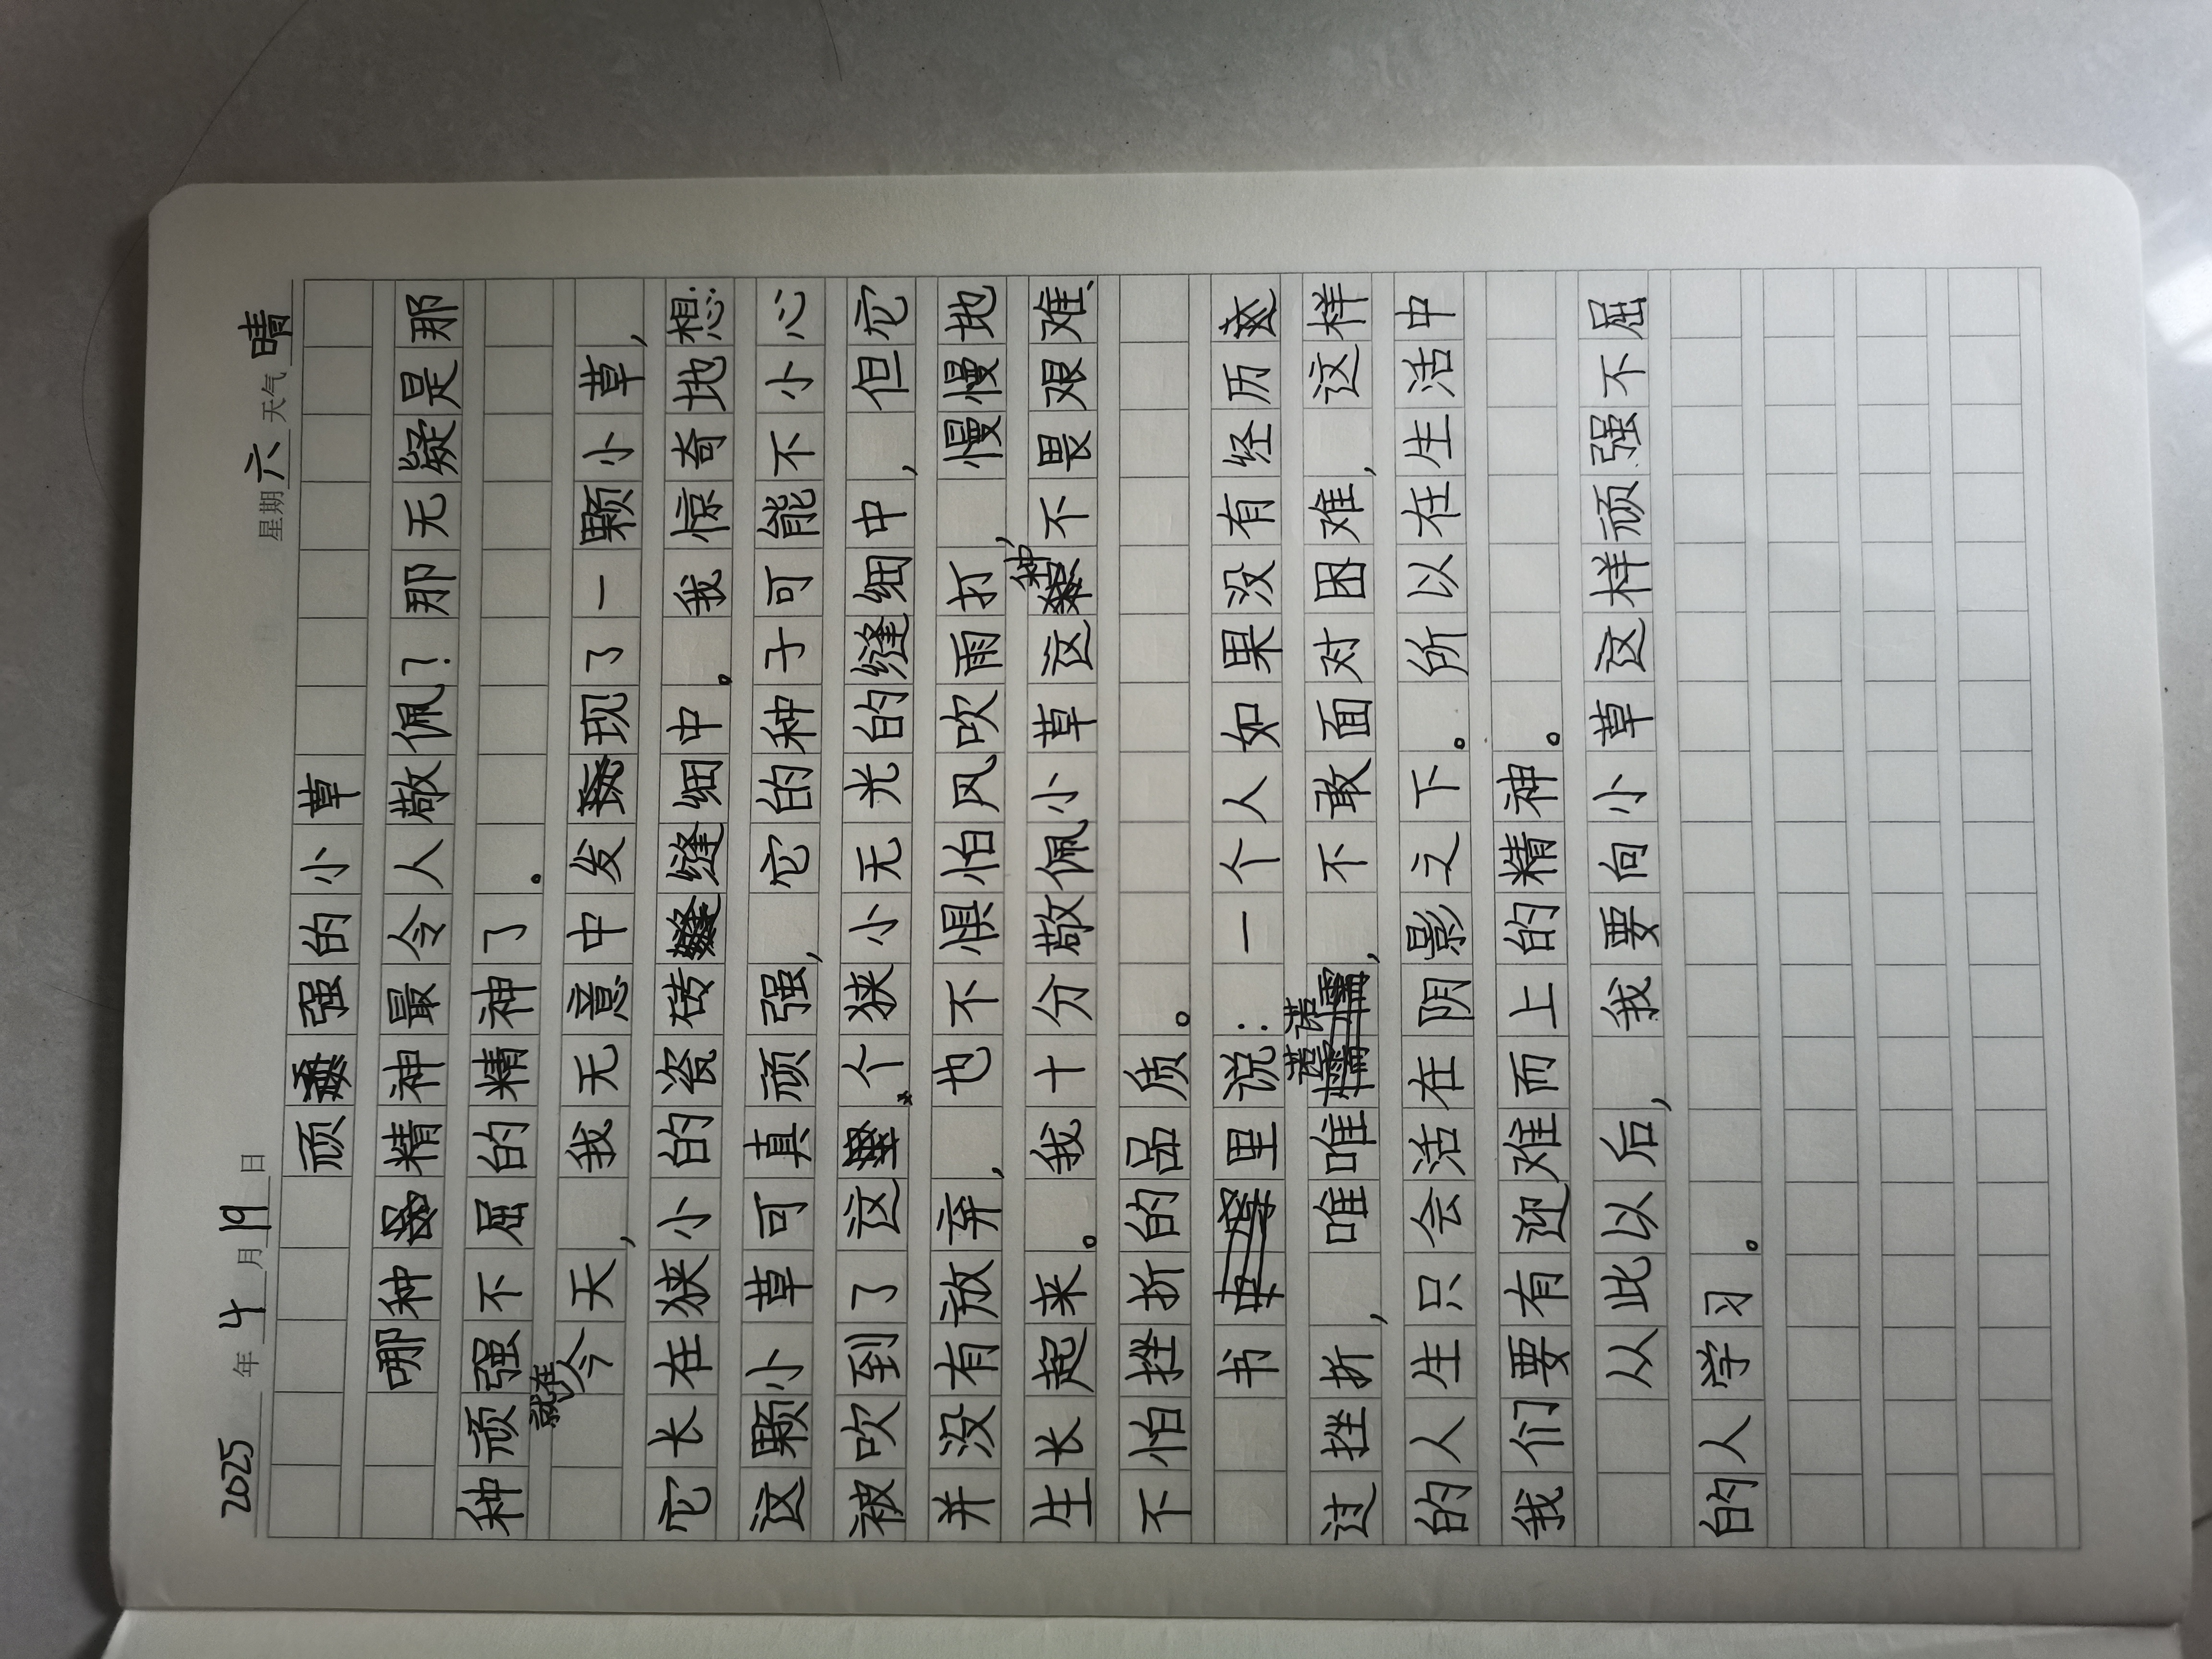 2025年4月19日 星期六 天气晴
顽强的小草
哪种精神最令人敬佩？那无疑是那
种顽强不屈的精神了。
就在今天，我无意中发现了一颗小草，
它长在狭小的瓷砖缝细中。我惊奇地想：
这颗小草可真顽强，它的种子可能不小心
被吹到了这个狭小无光的缝细中，但它
并没有放弃，也不惧怕风吹雨打，慢慢地
生长起来。我十分敬佩小草这种不畏艰难、
不怕挫折的品质。
书里说：一个人如果没有经历
过挫折，唯唯诺诺，不敢面对困难，这样
的人生只会活在阴影之下。所以在生活中
我们要有迎难而上的精神。
从此以后，我要向小草这样顽强不屈
的人学习。